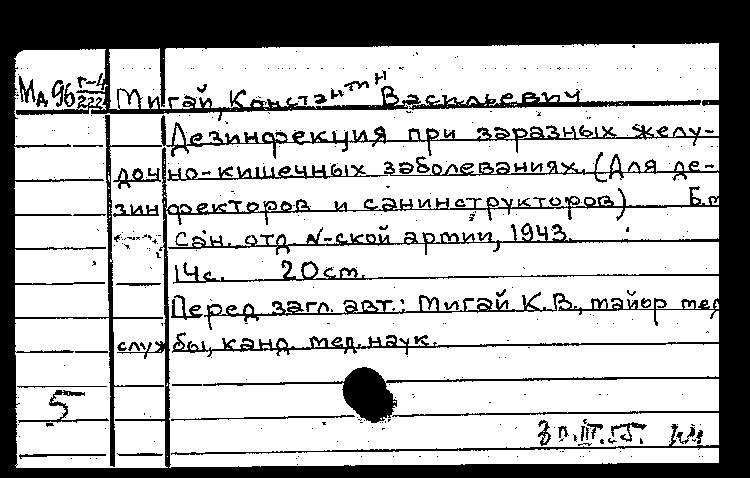 Мд 96 г-4/222 Мигай, Константин Васильевич
Дезинфекция при заразных желу-
дочно-кишечных заболеваниях. (Для де-
зинфекторов и санинструкторов) Б.м
Сан. отд. N-ской армии, 1943.
14с. 20ст.
Перед загл. авт.: Мигай К.В., майор мед
службы, канд. мед. наук.
5